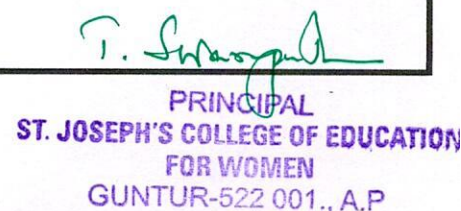 T.
PRINCIPAL
ST. JOSEPH'S COLLEGE OF EDUCATION
FOR WOMEN
GUNTUR-522 001., A.P